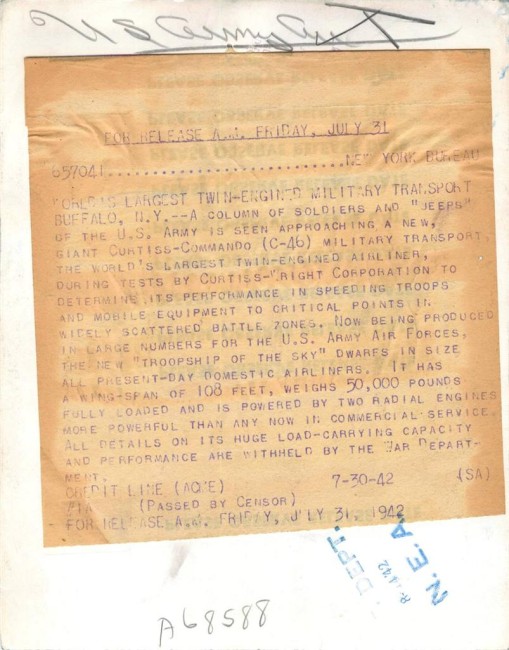 US Army Art
FOR RELEASE A.M. FRIDAY, JULY 31
657041..............................NEW YORK BUREAU
WORLD'S LARGEST TWIN-ENGINED MILITARY TRANSPORT
BUFFALO, N.Y.--A COLUMN OF SOLDIERS AND "JEEPS"
OF THE U.S. ARMY IS SEEN APPROACHING A NEW,
GIANT CURTISS-COMMANDO (C-46) MILITARY TRANSPORT,
THE WORLD'S LARGEST TWIN-ENGINED AIRLINER,
DURING TESTS BY CURTISS-WRIGHT CORPORATION TO
DETERMINE ITS PERFORMANCE IN SPEEDING TROOPS
AND MOBILE EQUIPMENT TO CRITICAL POINTS IN
WIDELY SCATTERED BATTLE ZONES. NOW BEING PRODUCED
IN LARGE NUMBERS FOR THE U.S. ARMY AIR FORCES,
THE NEW "TROOPSHIP OF THE SKY" DWARFS IN SIZE
ALL PRESENT-DAY DOMESTIC AIRLINERS. IT HAS
A WING-SPAN OF 108 FEET, WEIGHS 50,000 POUNDS
FULLY LOADED AND IS POWERED BY TWO RADIAL ENGINES
MORE POWERFUL THAN ANY NOW IN COMMERCIAL SERVICE.
ALL DETAILS ON ITS HUGE LOAD-CARRYING CAPACITY
AND PERFORMANCE ARE WITHHELD BY THE WAR DEPART-
MENT.
CREDIT LINE (ACME) 7-30-42 (SA)
(PASSED BY CENSOR)
FOR RELEASE A.M. FRIDAY, JULY 31, 1942
DEPT.
N.E.A.
A68588